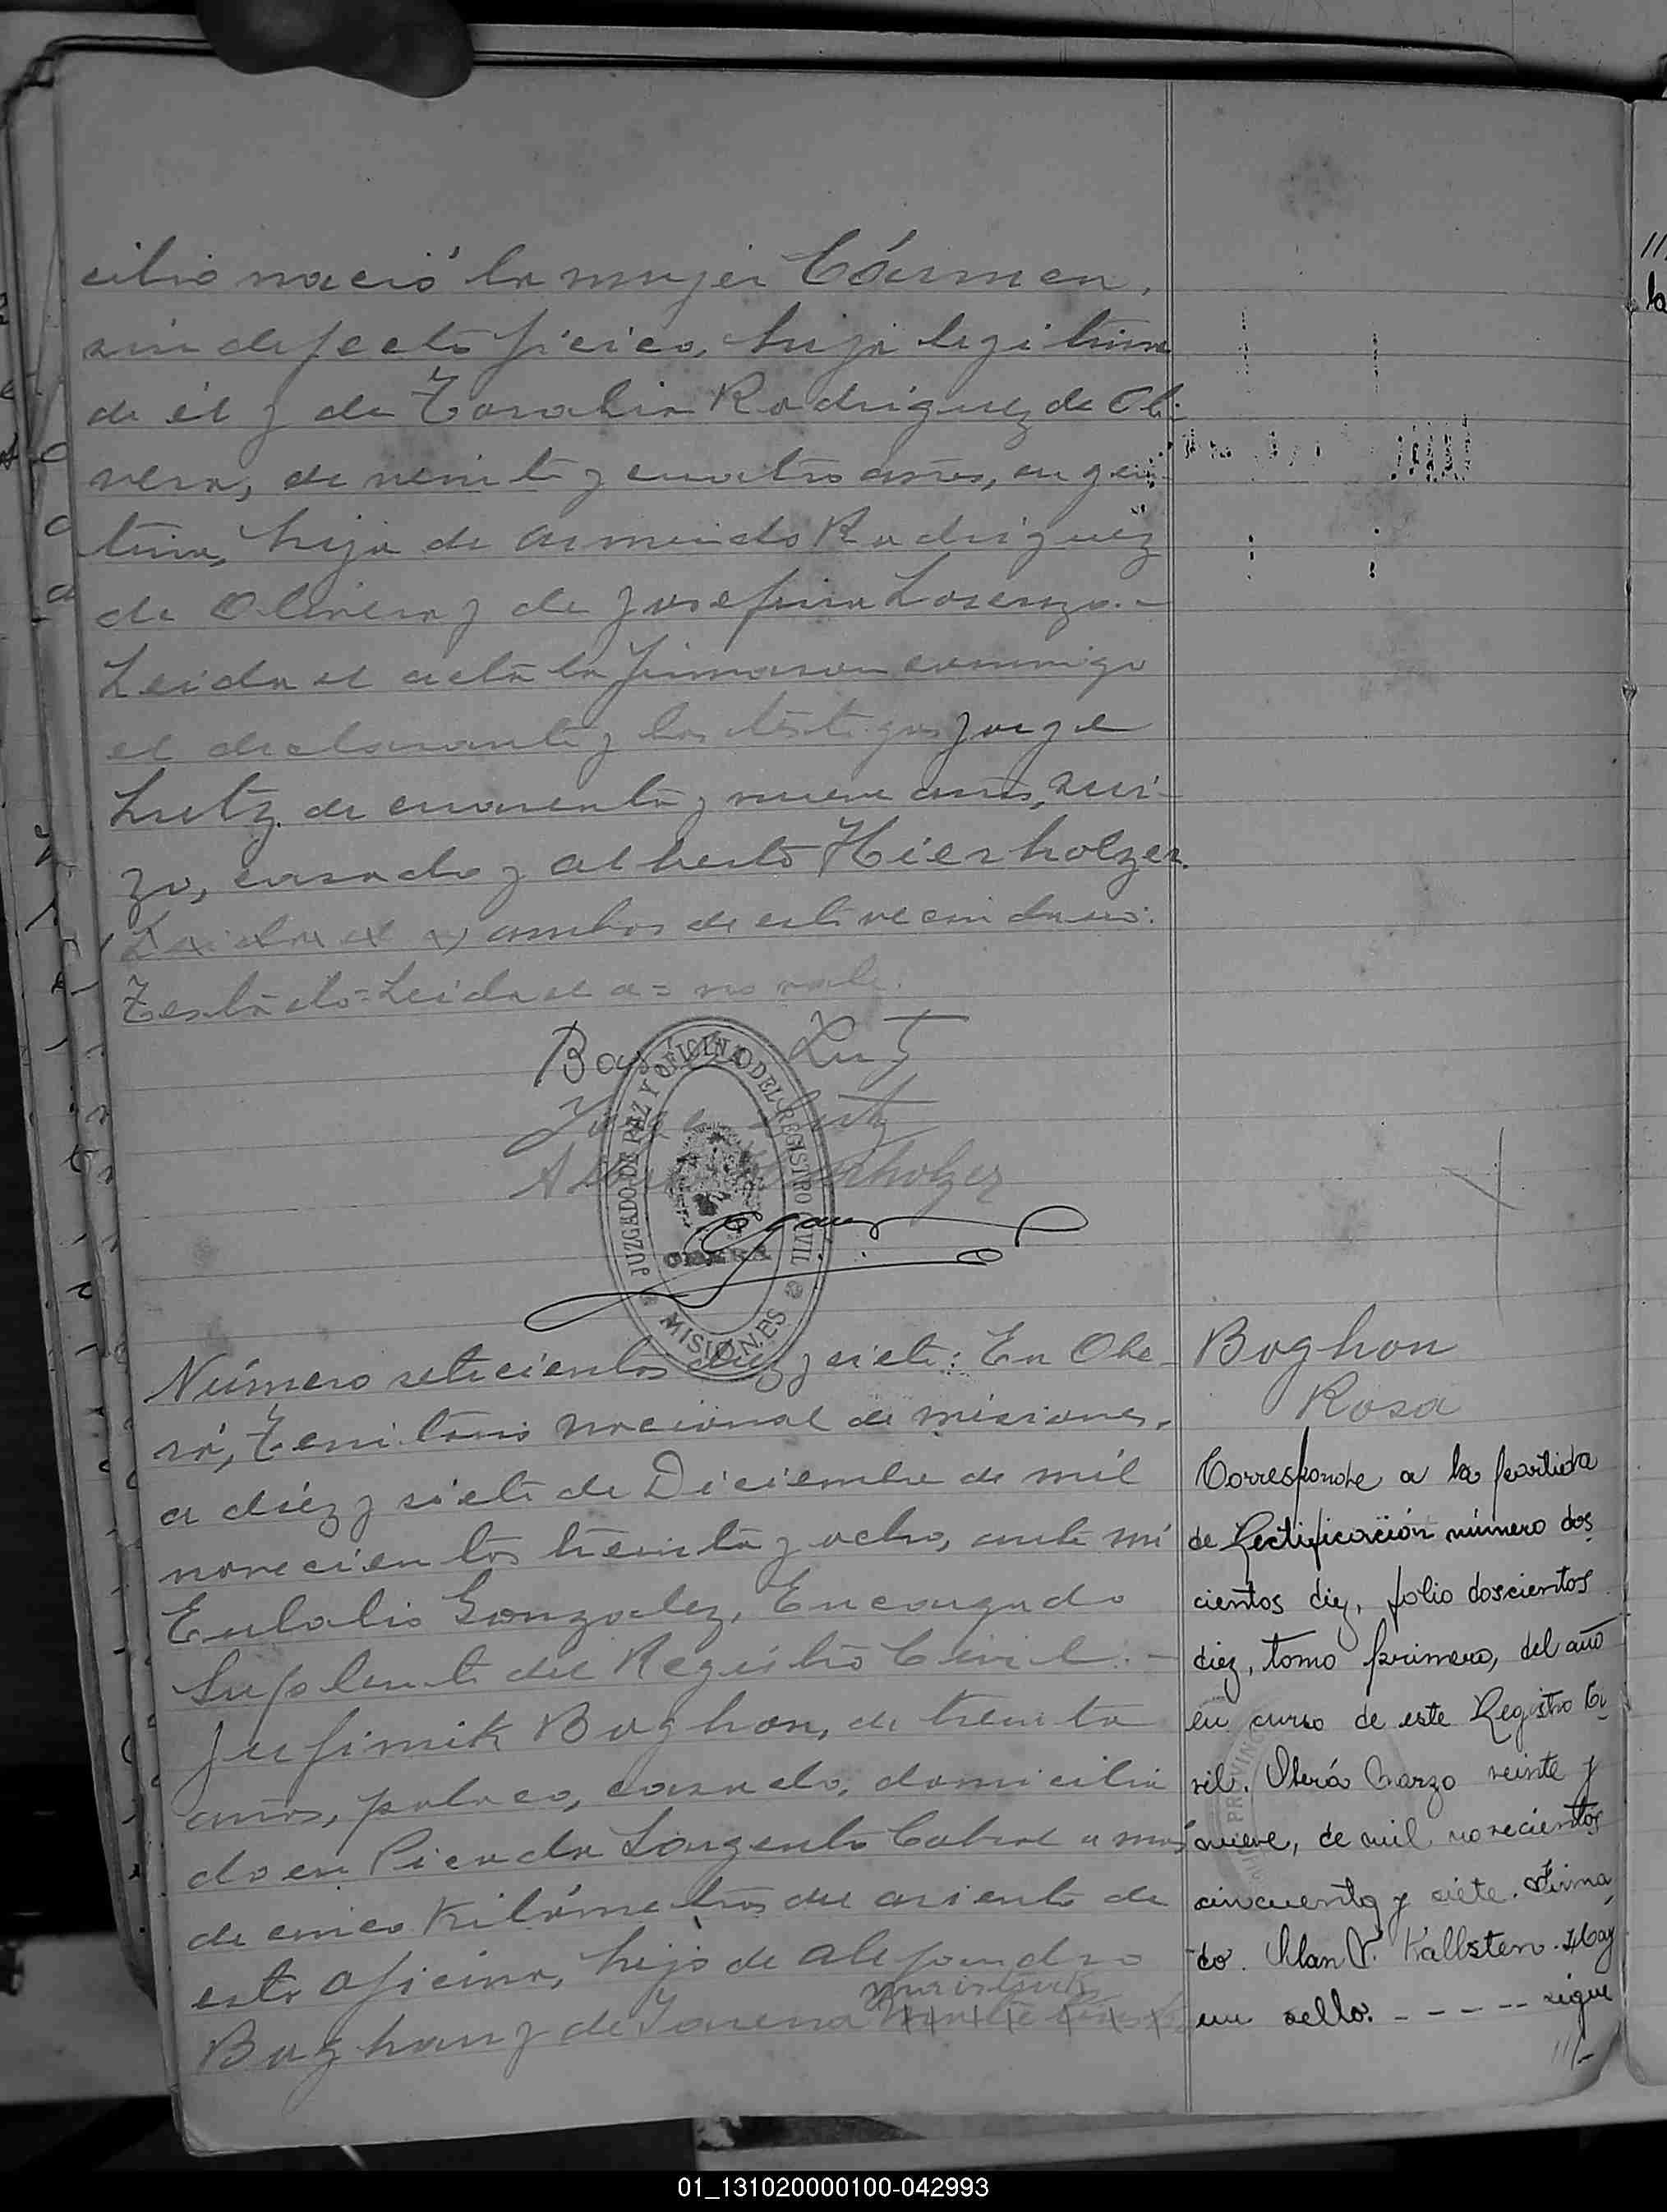 cilio nació la mujer Cármen,
sin defecto fícico, hija legitima
de él y de Rodriguez de Oli-
vera, de veinte y cuatro años, argen-
tina, hija de Armindo Rodriguez
de Olivera y de Josefina Lorenzo.-
Leida el acta la firmaron conmigo
el declarante y los testigos Jorge
Lutz de cuarenta y nueve años, sui-
zo, casado y Alberto Hierholzer.
Leida el a ambos de este vecindario:
Testado=Leida el a= no vale.
Lutz
Jorge Lutz
JUZGADO DE PAZ Y OFICINA DEL REGISTRO CIVIL
OBERA
MISIONES
Número setecientos diez y siete: En Obe-
rá, Territorio Nacional de Misiones,
a diéz y siete de Diciembre de mil
novecientos treinta y ocho, ante mi
Eulalio Gonzalez, Encargado
Suplente del Registro Civil.-
Boghon, de treinta
años, polaco, casado, domicilia
do en Picada Sargento Cabral a más
de cinco Kilómetros del asiento de
esta oficina, hijo de Alejandro
Boghon y de
Boghon
Rosa
Corresponde a la partida
de Rectificación número dos
cientos diez, folio doscientos
diez, tomo primero, del año
en curso de este Registro Ci
vil. Oberá Marzo veinte y
nueve, de mil novecientos
cincuenta y siete. Firma
do. Kallsten. Hay
un sello. - - - - - sigue
///-
01_131020000100-042993